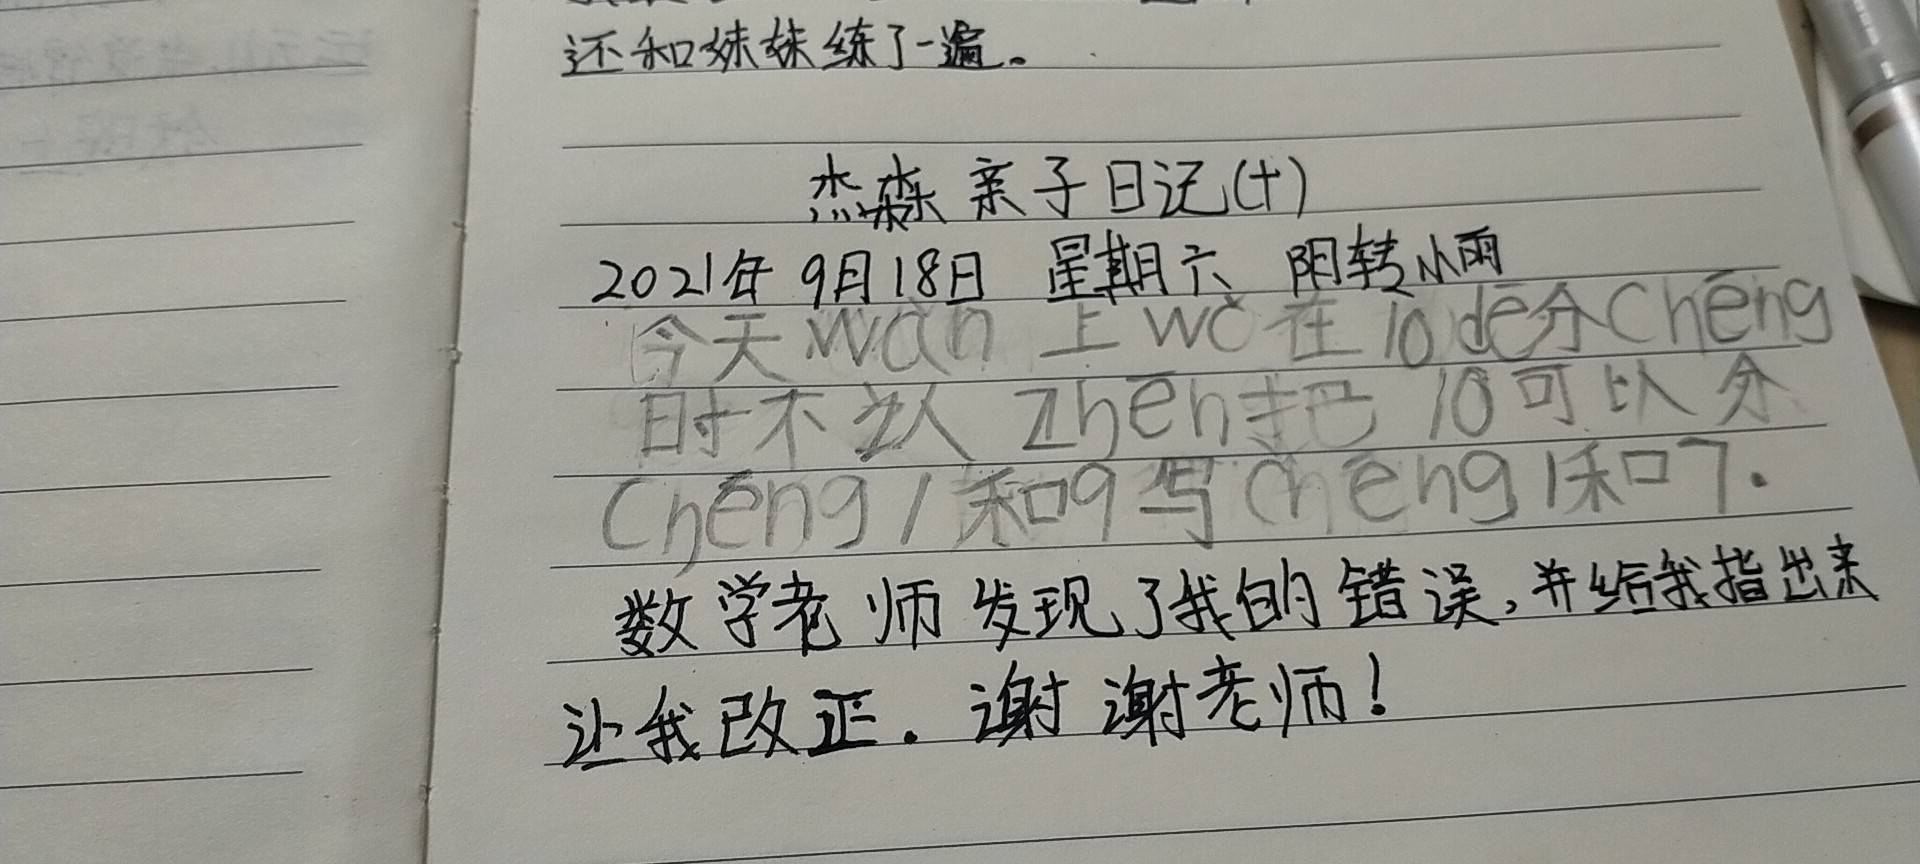 还和妹妹练了一遍。
杰森亲子日记(十)
2021年 9月18日 星期六 阴转小雨
今天wǎn上wǒ在10de分chéng
时不认zhēn把10可以分
chéng1和9写chéng1和7.
数学老师发现了我的错误,并给我指出来
让我改正.谢谢老师!